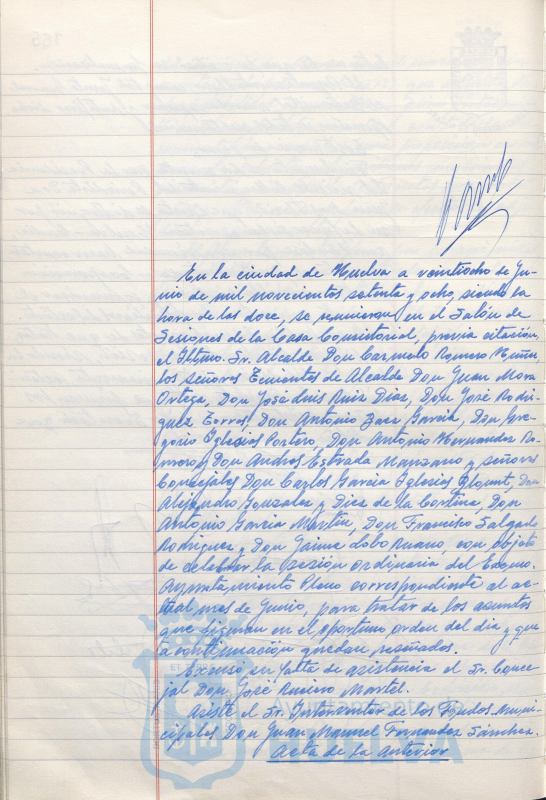 En la ciudad de Huelva a veintiocho de Ju-
nio de mil novecientos setenta y ocho, siendo la
hora de las doce, se reunieron en el Salón de
Sesiones de la Casa Consistorial, previa citación,
el Iltmo. Sr. Alcalde Don Carmelo Romero
los señores Tenientes de Alcalde Don Juan Mora
Ortega, Don José Luis Ruiz Diaz, Don José Rodri-
guez Don Antonio Garcia, Don Gre-
gorio Iglesias Portero, Don Antonio Hernandez Ro-
mero y Don Andres Estrada Manzano y señores
Concejales Don Carlos Garcia Iglesias Don
Alejandro Gonzalez y Diez de la Cortina, Don
Antonio Garcia Martin, Don Francisco Salgado
Rodriguez y Don Jaime Lobo Ruano, con objeto
de celebrar la sesion ordinaria del Excmo.
Ayuntamiento Pleno correspondiente al ac-
tual mes de Junio, para tratar de los asuntos
que figuran en el oportuno orden del dia y que
a continuación quedan reseñados.
Excusó su falta de asistencia el Sr. Conce-
jal Don José Martel.
Asiste el Sr. Interventor de los Fondos Muni-
cipales Don Juan Manuel Fernandez Sánchez.
Acta de la anterior